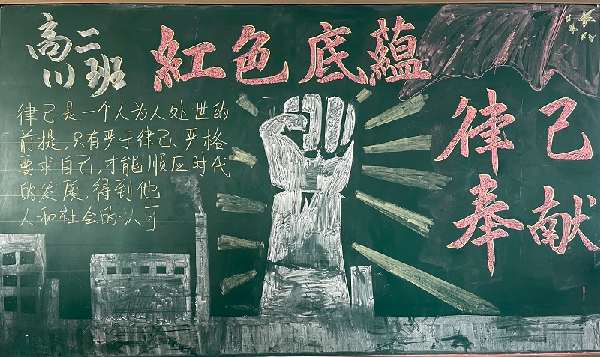 高二
(1)班
紅色底蘊
律己是一个人为人处世的
前提,只有严于律己、严格
要求自己,才能顺应时代
的发展,得到他
人和社会的认可
律己
奉献